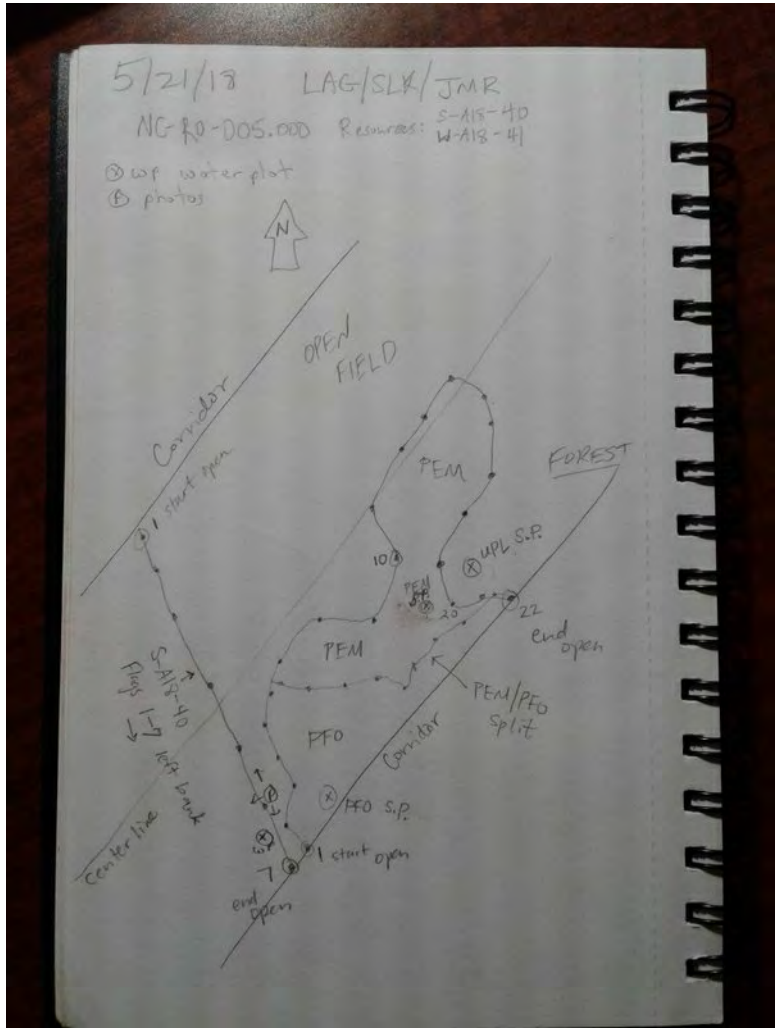 5/21/18 LAG/SLK/JMR
NG-RO-005.000 Resources: S-A18-40
W-A18-41
Ⓧ wp water plot
Ⓟ photos
N
OPEN
FIELD
Corridor
1 start open
FOREST
PEM
10
UPL S.P.
PEM
S.P.
20
22
end
open
PEM
PEM/PFO
split
S-A18-40
Flags 1-7
left bank
PFO
Corridor
PFO S.P.
center line
7
1 start open
end
open